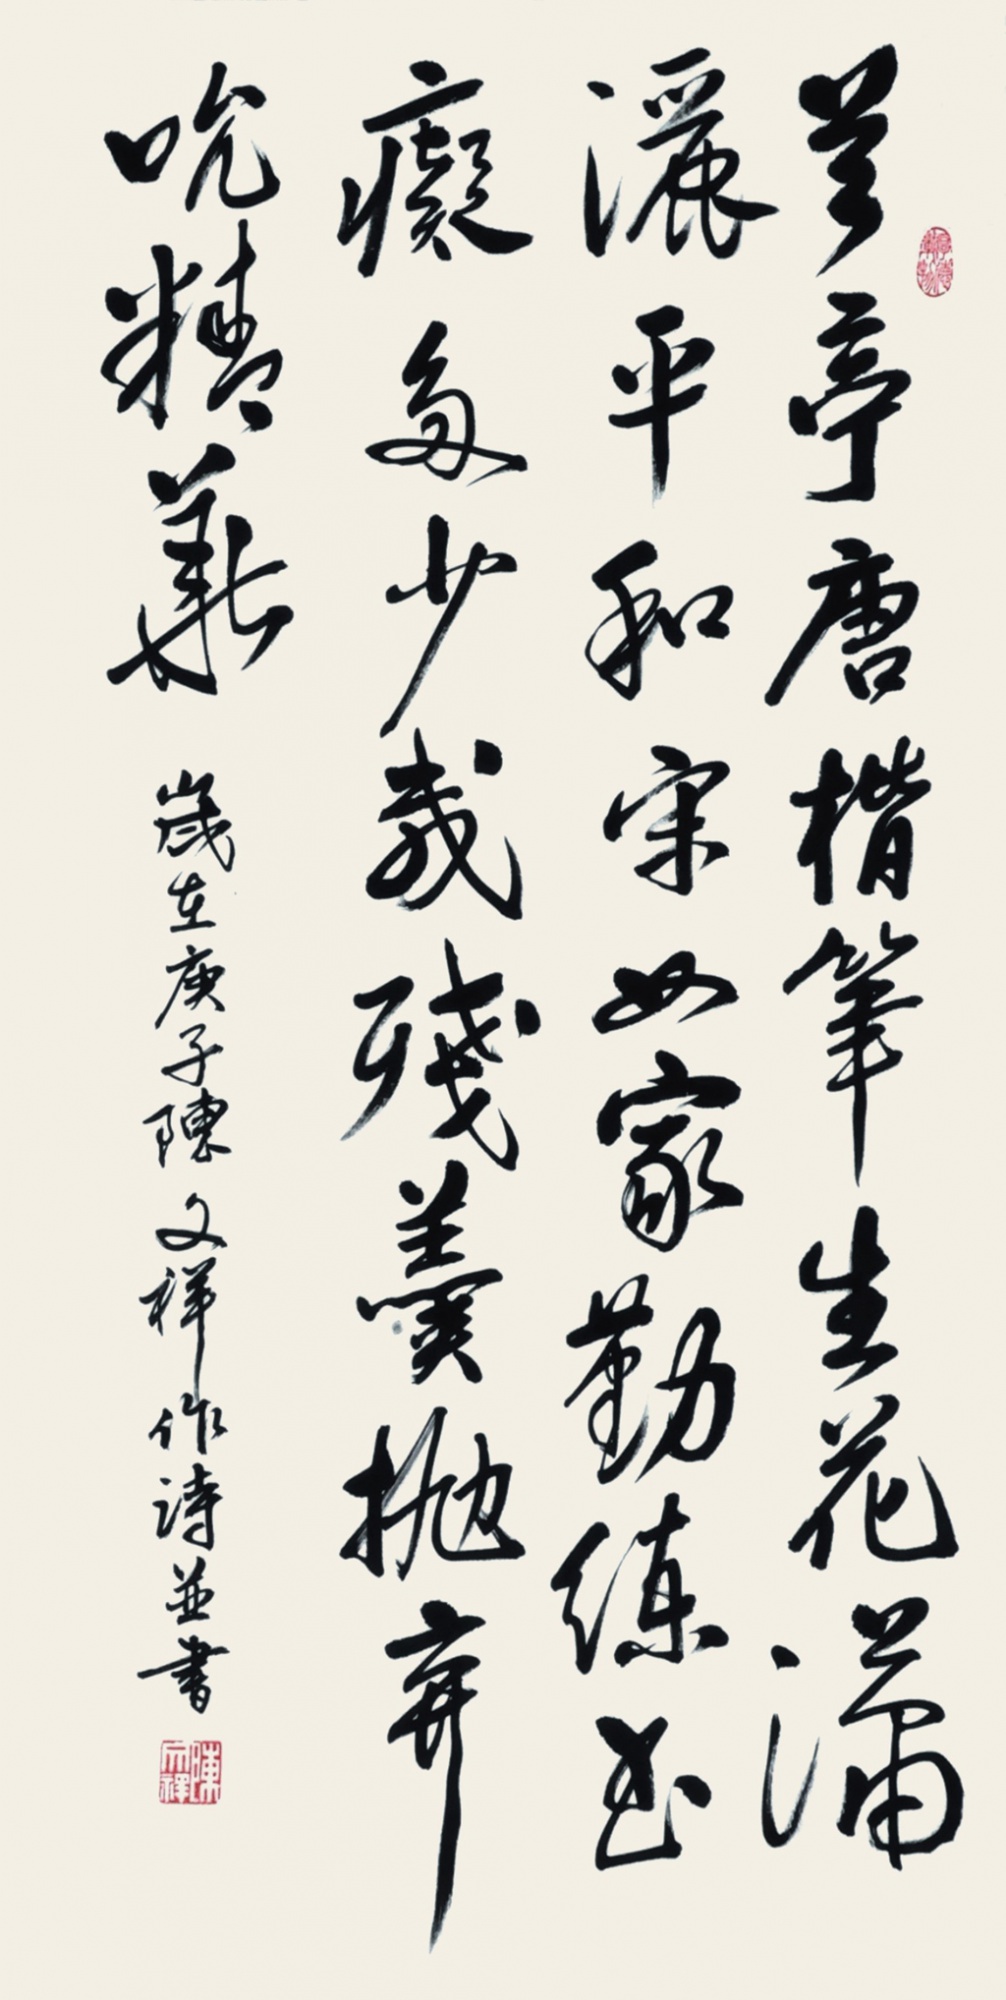 兰亭唐楷筆生花瀟
灑平和宋四家勤練书
癡多少載殘羹抛弃
吮精華
歲在庚子陳文祥作詩並書
陳文祥